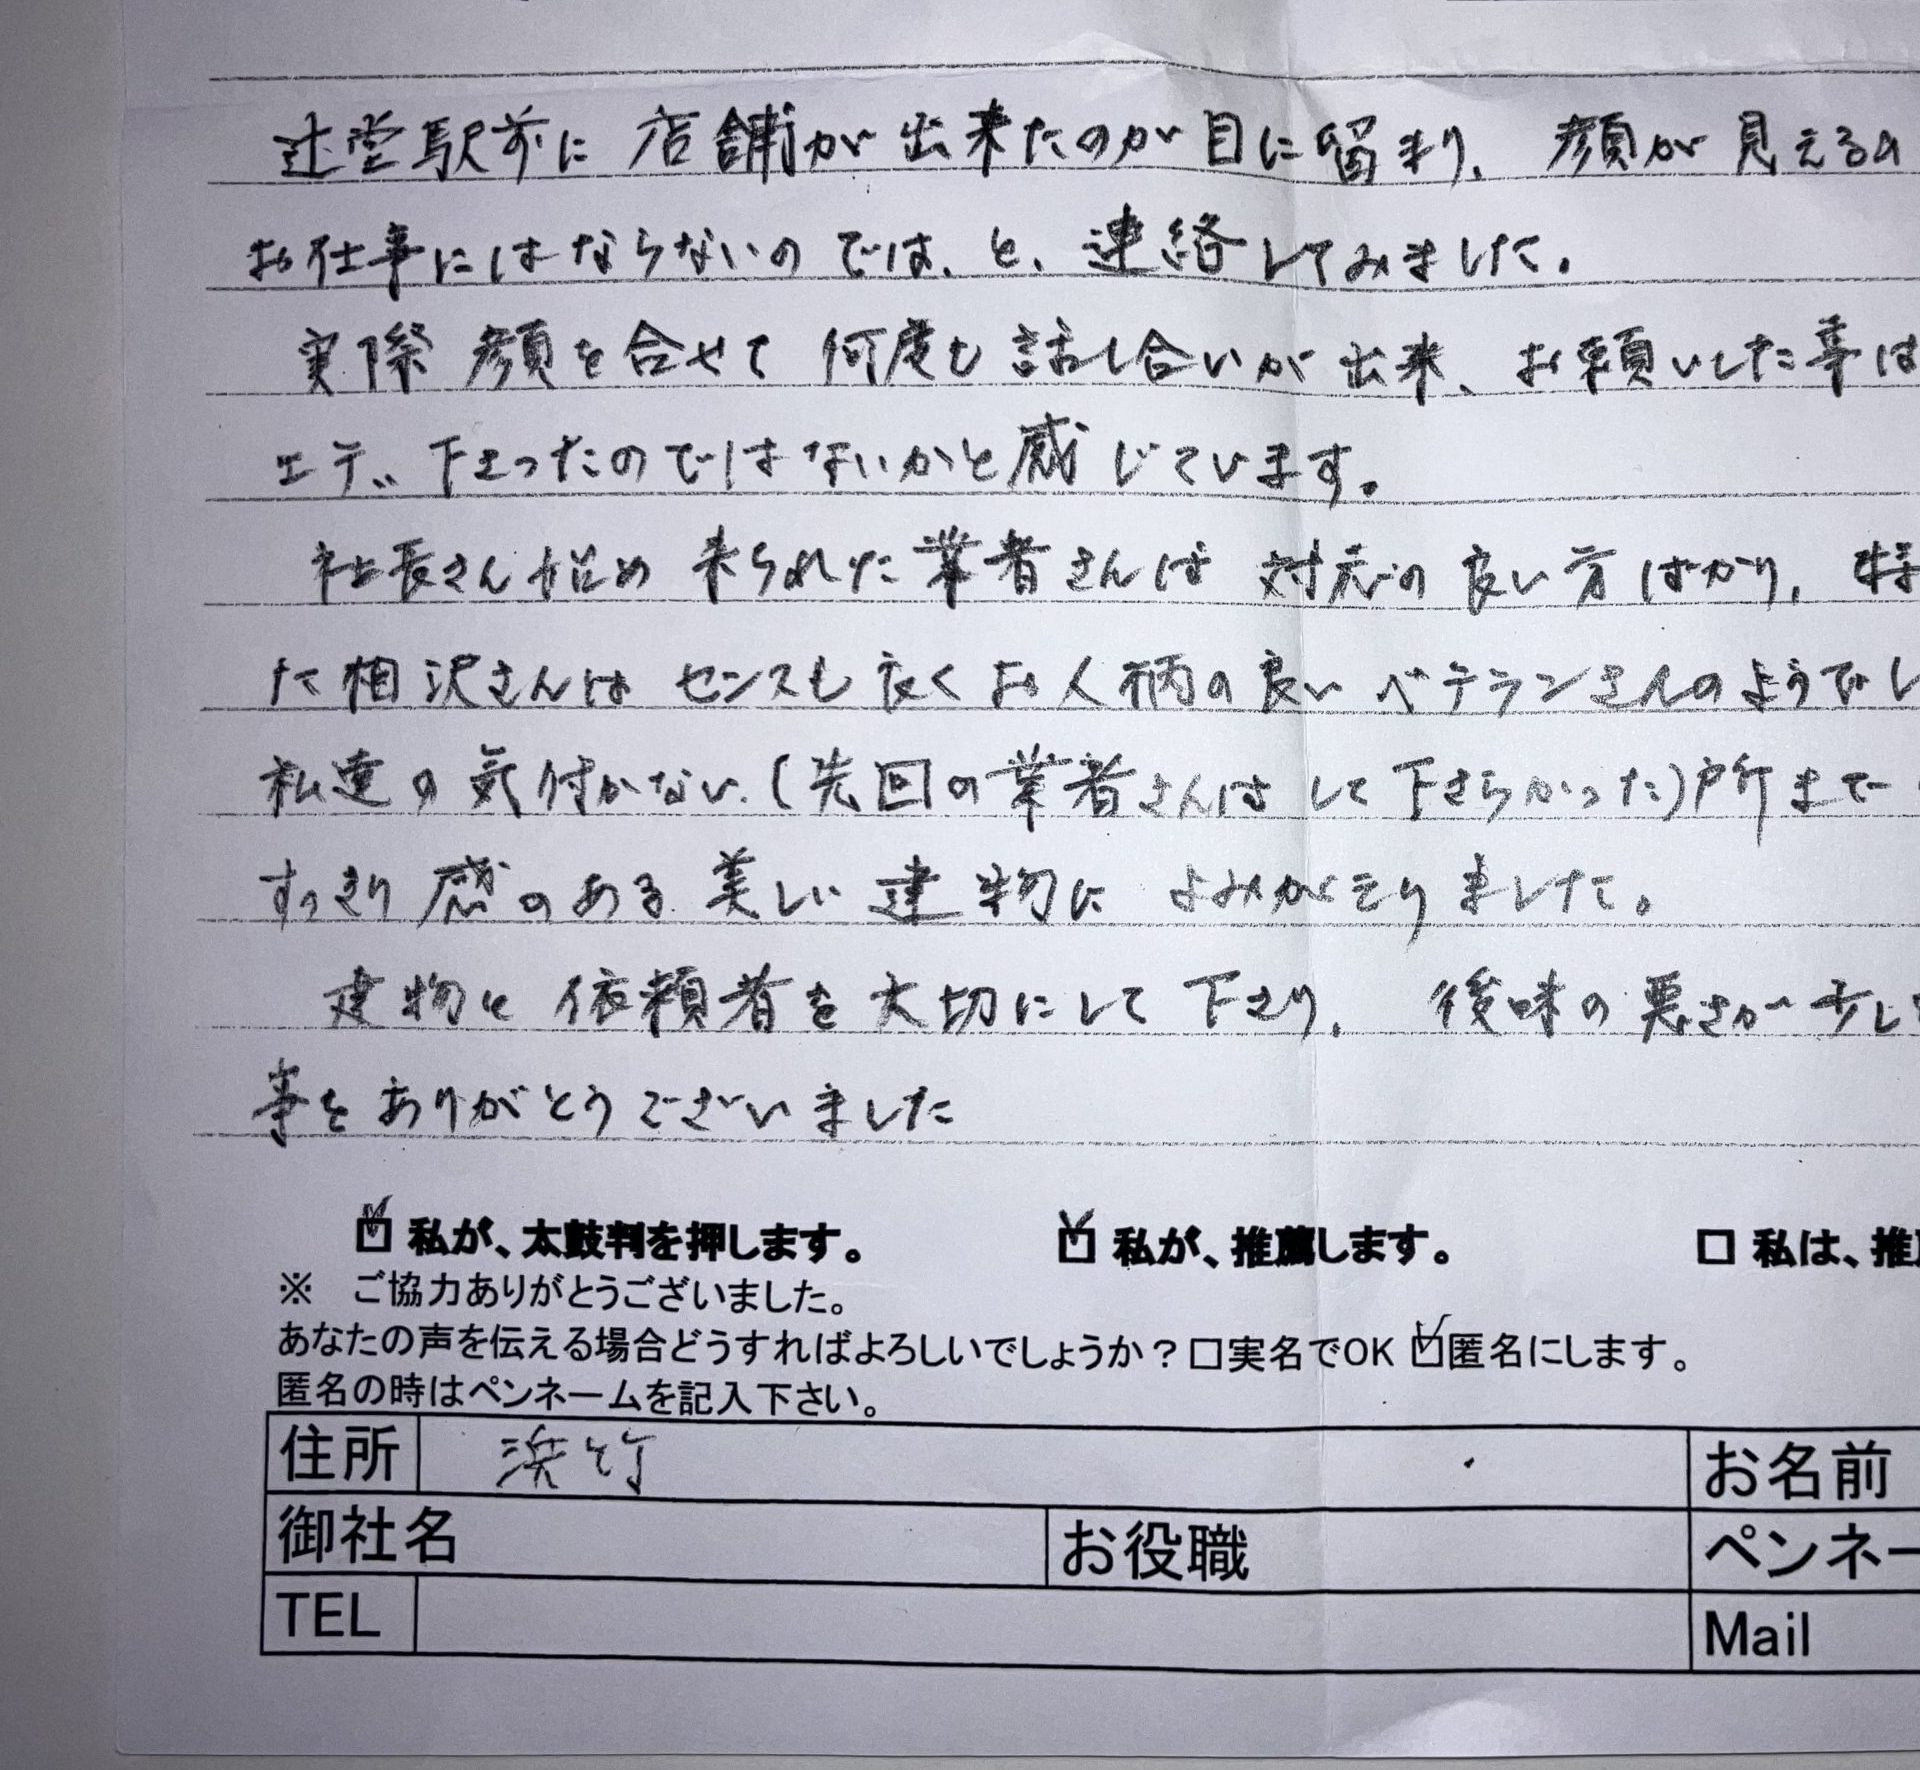 辻堂駅前に店舗が出来たのが目に留まり、顔が見える
お仕事にはならないのでは、と、連絡してみました。
実際顔を合せて何度も話し合いが出来、お頼いした事は
下さったのではないかと感じています。
社長さん始め来られた業者さんは対応の良い方ばかり、特
た相沢さんはセンスも良くお人柄の良いベテランさんのようでし
私達の気付かない(先回の業者さんはして下さらかった)所まで
すっきり感のある美しい建物によみがえりました。
建物と依頼者を大切にして下さり、後味の悪さが少し
事をありがとうございました
☑私が、太鼓判を押します。 ☑私が、推薦します。 □私は、推
※ ご協力ありがとうございました。
あなたの声を伝える場合どうすればよろしいでしょうか?□実名でOK ☑匿名にします。
匿名の時はペンネームを記入下さい。
住所 浜竹 お名前
御社名 お役職 ペンネー
TEL Mail